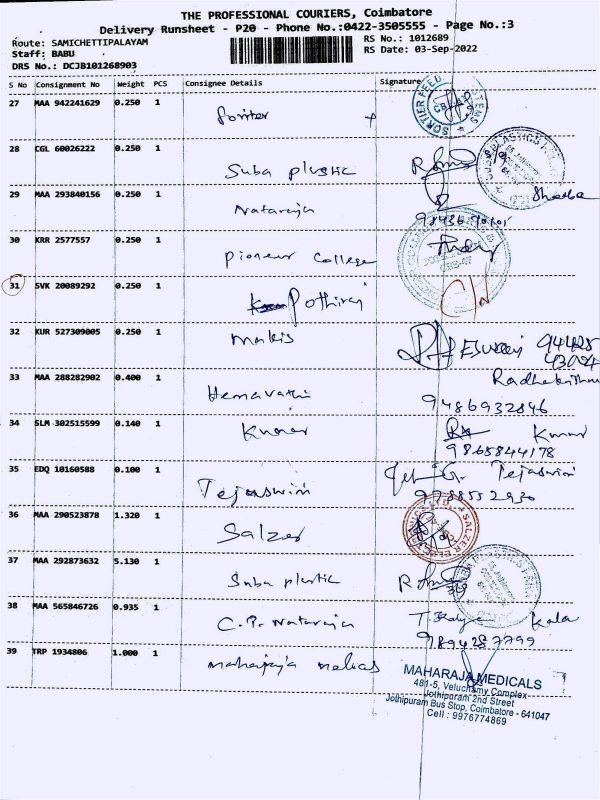 THE PROFESSIONAL COURIERS, Coimbatore
Delivery Runsheet - P20 - Phone No.:0422-3505555 - Page No.:3
Route: SAMICHETTIPALAYAM
RS No.: 1012689
Staff: BABU
RS Date: 03-Sep-2022
DRS No.: DCJB101268903
S No Consignment No Weight PCS Consignee Details Signature
27 MAA 942241629 0.250 1
SORTIER FEED
28 CGL 60026222 0.250 1 Suba plastic
29 MAA 293840156 0.250 1 Nataraja
30 KRR 2577557 0.250 1 Pioneer College
31 SVK 20089292 0.250 1 Pothiraj
32 KUR 527309005 0.250 1 Makis
33 MAA 288282902 0.400 1 Hemavathi
9486932846
34 SLM 302515599 0.140 1 Kumar Kumar
9865844178
35 EDQ 10160588 0.100 1 Tejaswini Tejaswini
9788552930
36 MAA 290523878 1.320 1 Salzer
SALZER
37 MAA 292873632 5.130 1 Suba plastic
38 MAA 565846726 0.935 1 C.P. Nataraja Kala
9894287799
39 TRP 1934806 1.000 1 Maharaja
MAHARAJA MEDICALS
481-5, Veluchamy Complex
Jothipuram 2nd Street
Jothipuram Bus Stop, Coimbatore - 641047
Cell : 9976774869